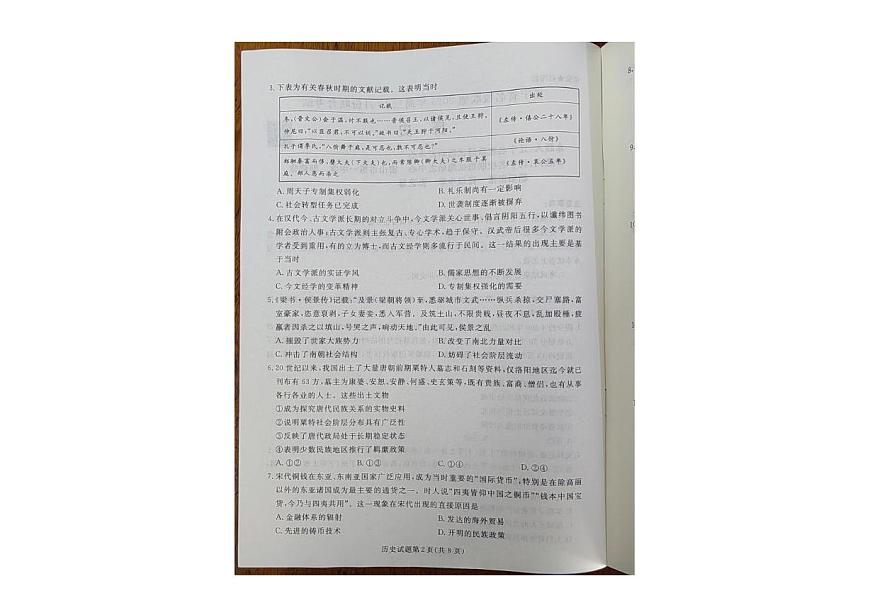 3. 下表为有关春秋时期的文献记载。这表明当时
记载 出处
冬,(晋文公)会于温,讨不服也……晋侯召王,以诸侯见,且使王狩。
仲尼曰:“以臣召君,不可以训。”故书曰:“天王狩于河阳。” 《左传·僖公二十八年》
孔子谓季氏,“八佾舞于庭,是可忍也,孰不可忍也?” 《论语·八佾》
郑驷秦富而侈,嬖大夫(下大夫)也,而常陈卿(卿大夫)之车服于其
庭。郑人恶而杀之 《左传·哀公五年》
A. 周天子专制集权弱化 B. 礼乐制尚有一定影响
C. 社会转型任务已完成 D. 世袭制度逐渐被摒弃
4. 在汉代今、古文学派长期的对立斗争中,今文学派关心世事,倡言阴阳五行,以谶纬图书
附会政治人事;古文学派则主张复古、专心学术,趋于保守。汉武帝后很多今文学派的
学者受到重用,有的立为博士,而古文经学则多流行于民间。这一结果的出现主要是基
于当时
A. 古文学派的实证学风 B. 儒家思想的不断发展
C. 今文经学的变革精神 D. 专制集权强化的需要
5. 《梁书·侯景传》记载:“及景(梁朝将领)至,悉驱城市文武……纵兵杀掠,交尸塞路,富
室豪家,恣意裒剥,子女妻妾,悉入军营。及筑土山,不限贵贱,昼夜不息,乱加殴棰,疲
羸者因杀之以填山,号哭之声,响动天地。”由此可见,侯景之乱
A. 摧毁了世家大族势力 B. 改变了南北力量对比
C. 冲击了南朝社会结构 D. 妨碍了社会阶层流动
6. 20 世纪以来,我国出土了大量唐朝前期粟特人墓志和石刻等资料,仅洛阳地区迄今就已
刊布有 63 方,墓主为康婆、安恕、安静、何盛、史玄策等,既有贵族、富商、僧侣,也有从事
各行各业的人士。这些出土文物
①成为探究唐代民族关系的实物史料
②说明粟特社会阶层分布具有广泛性
③反映了唐代政局处于长期稳定状态
④表明少数民族地区推行了羁縻政策
A. ①② B. ①③ C. ①④ D. ②④
7. 宋代铜钱在东亚、东南亚国家广泛应用,成为当时重要的“国际货币”,特别是在除高丽
以外的东亚诸国成为最主要的通货之一。时人说“四夷皆仰中国之铜币”“钱本中国宝
货,今乃与四夷共用”。这一现象在宋代出现的直接原因是
A. 金融体系的辐射 B. 发达的海外贸易
C. 先进的铸币技术 D. 开明的民族政策
历史试题第 2 页(共 8 页)